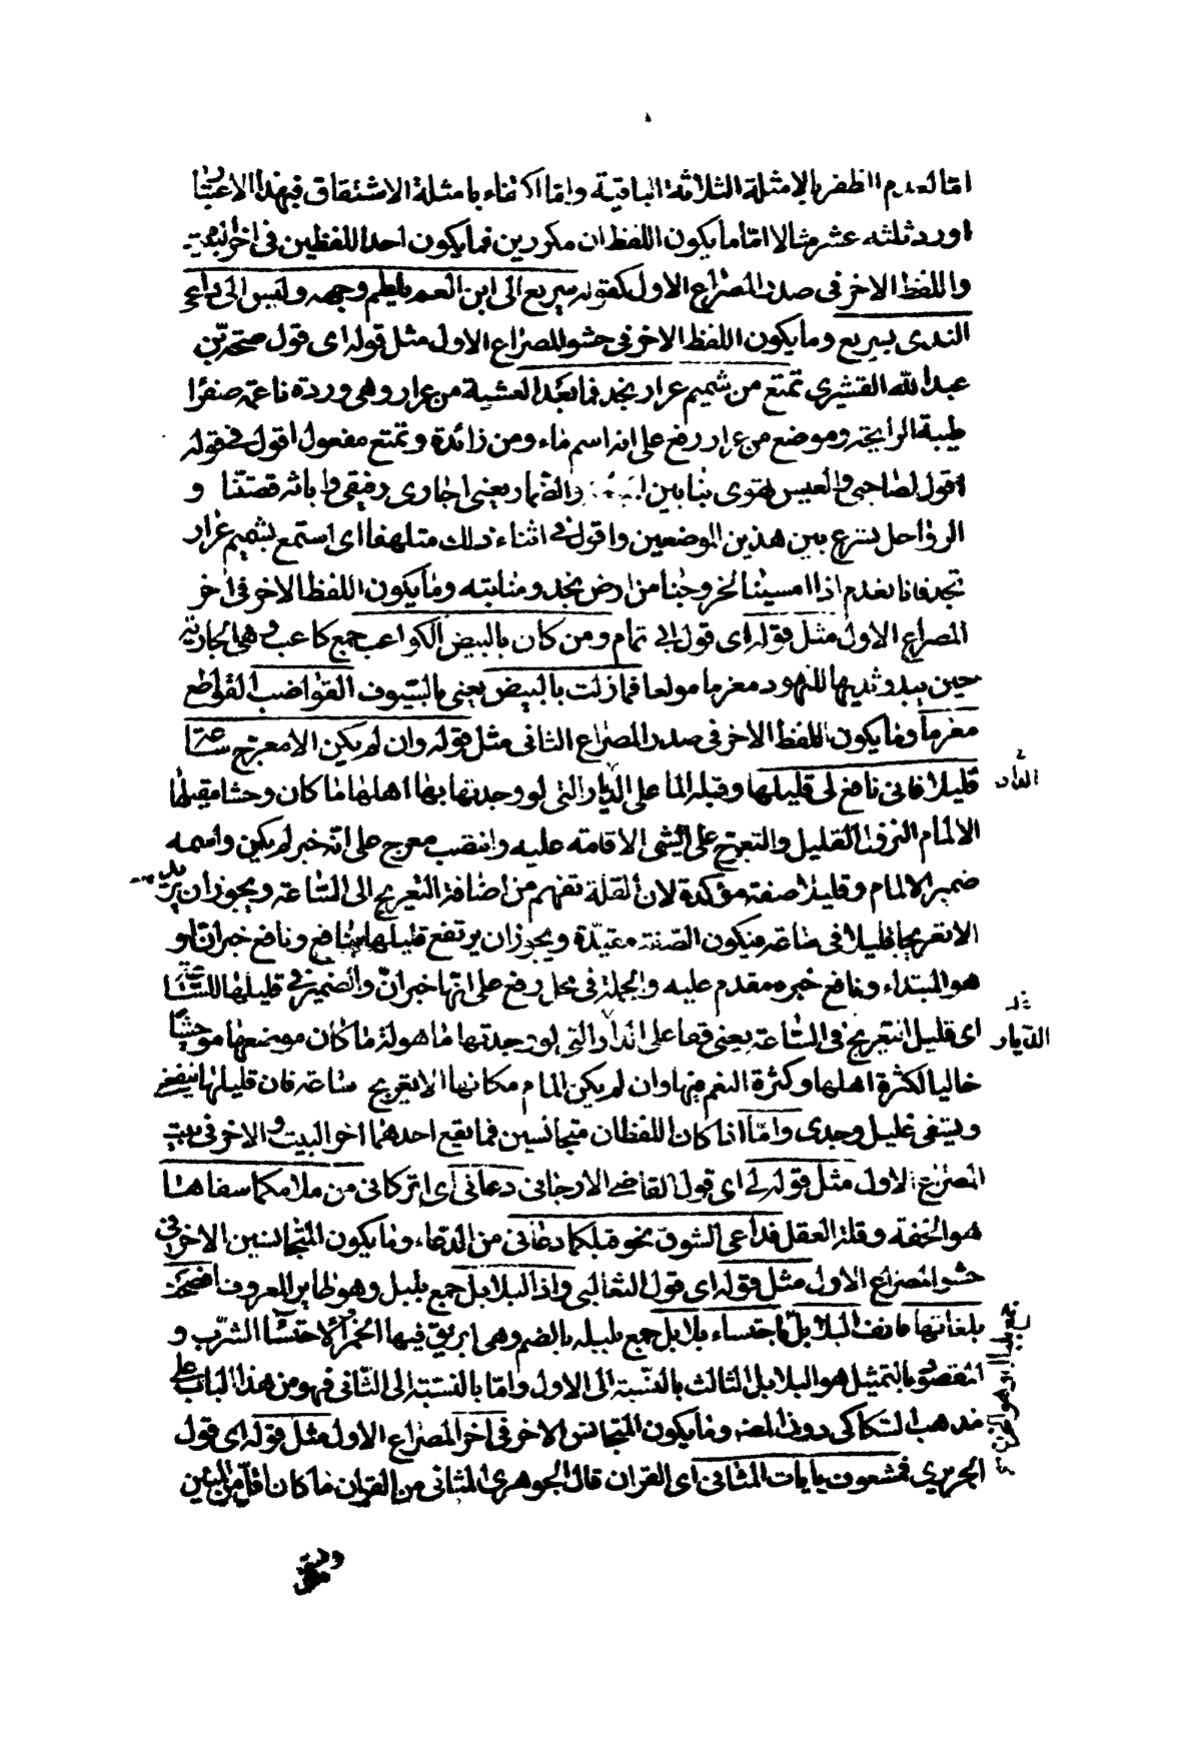 امّا لعدم الظفر بالامثلة الثلاثة الباقية وامّا اكتفاء بامثلة الاشتقاق فبهذا الاعتبار
اورد ثلثه عشر مثالا امّا ما يكون اللفظان مكررين فما يكون احد اللفظين فى اخر البيت
واللفظ الاخر فى صدر المصراع الاول كقوله سريع الى ابن العم يلطم وجهه وليس الى داعى
الندى بسريع وما يكون اللفظ الاخر فى حشو المصراع الاول مثل قوله اى قول صمّة بن
عبد الله القشيرى تمتع من شميم عرار نجد فما بعد العشية من عرار وهى وردة ناعمة صفرا
طيبة الرايحة وموضع من عرار رفع على انه اسم ماء ومن زائدة وتمتع مفعول اقول فى قوله
اقول لصاحبى والعيس تهوى بنا بين فالضمار يعنى اجارى رفيقى واباثه قصتنا و
الرواحل يسرع بين هذين الموضعين واقول فى اثناء ذلك متلهفا اى استمع بشميم عرار
نجد فانا نعدم اذا امسينا لخروجنا من ارض نجد ومنابته وما يكون اللفظ الاخر فى اخر
المصراع الاول مثل قوله اى قول ابى تمام ومن كان بالبيض الكواعب جمع كاعب وهى الجارية
حين يبدو ثديها للنهود مغرما مولعا فمازلت بالبيض يعنى بالسيوف القواضب القواطع
مغرما وما يكون اللفظ الاخر فى صدر المصراع الثانى مثل قوله وان لم يكن الا معرّج ساعة
قليلا فانى نافع لى قليلها وقبله الما على الديار التى لو وجدتها بها اهلها ما كان وحشا مقيلها
الالمام النزول القليل والتعرج على الشى الاقامة عليه وانتصب معرج على انه خبر لم يكن واسمه
ضمير الالمام وقليلا صفة مؤكدة لان القلة تفهم من اضافة التعريج الى الساعة ويجوز ان يريد
الا تعريجا قليلا فى ساعة فيكون الصّفة مقيدّة ويجوز ان يرتفع قليلها بنافع ونافع خبر ان او
هو المبتداء ونافع خبره مقدم عليه والجملة فى محل رفع على انّها خبر انّ والضمير فى قليلها للساعة
اى قليل التعريج فى الساعة يعنى قفا على الدار التى لو وجدتها ماهولة ما كان موضعها موحشا
خاليا لكثرة اهلها وكثرة النعم فيها وان لم يكن المام مكانها الا تعريج ساعة فان قليلها ينفعنى
ويشفى غليل وجدى وامّا اذا كان اللفظان متجانسين فما يقع احدهما اخر البيت والاخر فى
المصراع الاول مثل قوله اى قول القاضى الارجانى دعانى اى اتركانى من ملامكما سفاها
هو الخفة وقلة العقل فداعى الشوق نحو قبلكما دعانى من الدعاء وما يكون المتجانسين الاخر فى
حشو المصراع الاول مثل قوله اى قول الثعالبى واذا البلابل جمع بلبل وهو طاير المعروف افصحت
بلغاتها فانف البلابل باحتساء بلابل جمع بلبله بالضم وهى ابريق فيها الخمر والاحتسا الشرب و
المقصود بالتمثيل هو البلابل الثالث بالنسبة الى الاول وامّا بالنسبة الى الثانى فهو من هذا الباب على
مذهب السكاكى دون المص وما يكون المتجانس الاخر فى اخر المصراع الاول مثل قوله اى قول
الحريرى فمشعوف بايات المثانى اى القران قال الجوهرى المثانى من القران ما كان اقلّ من المئين
الدار
الديار